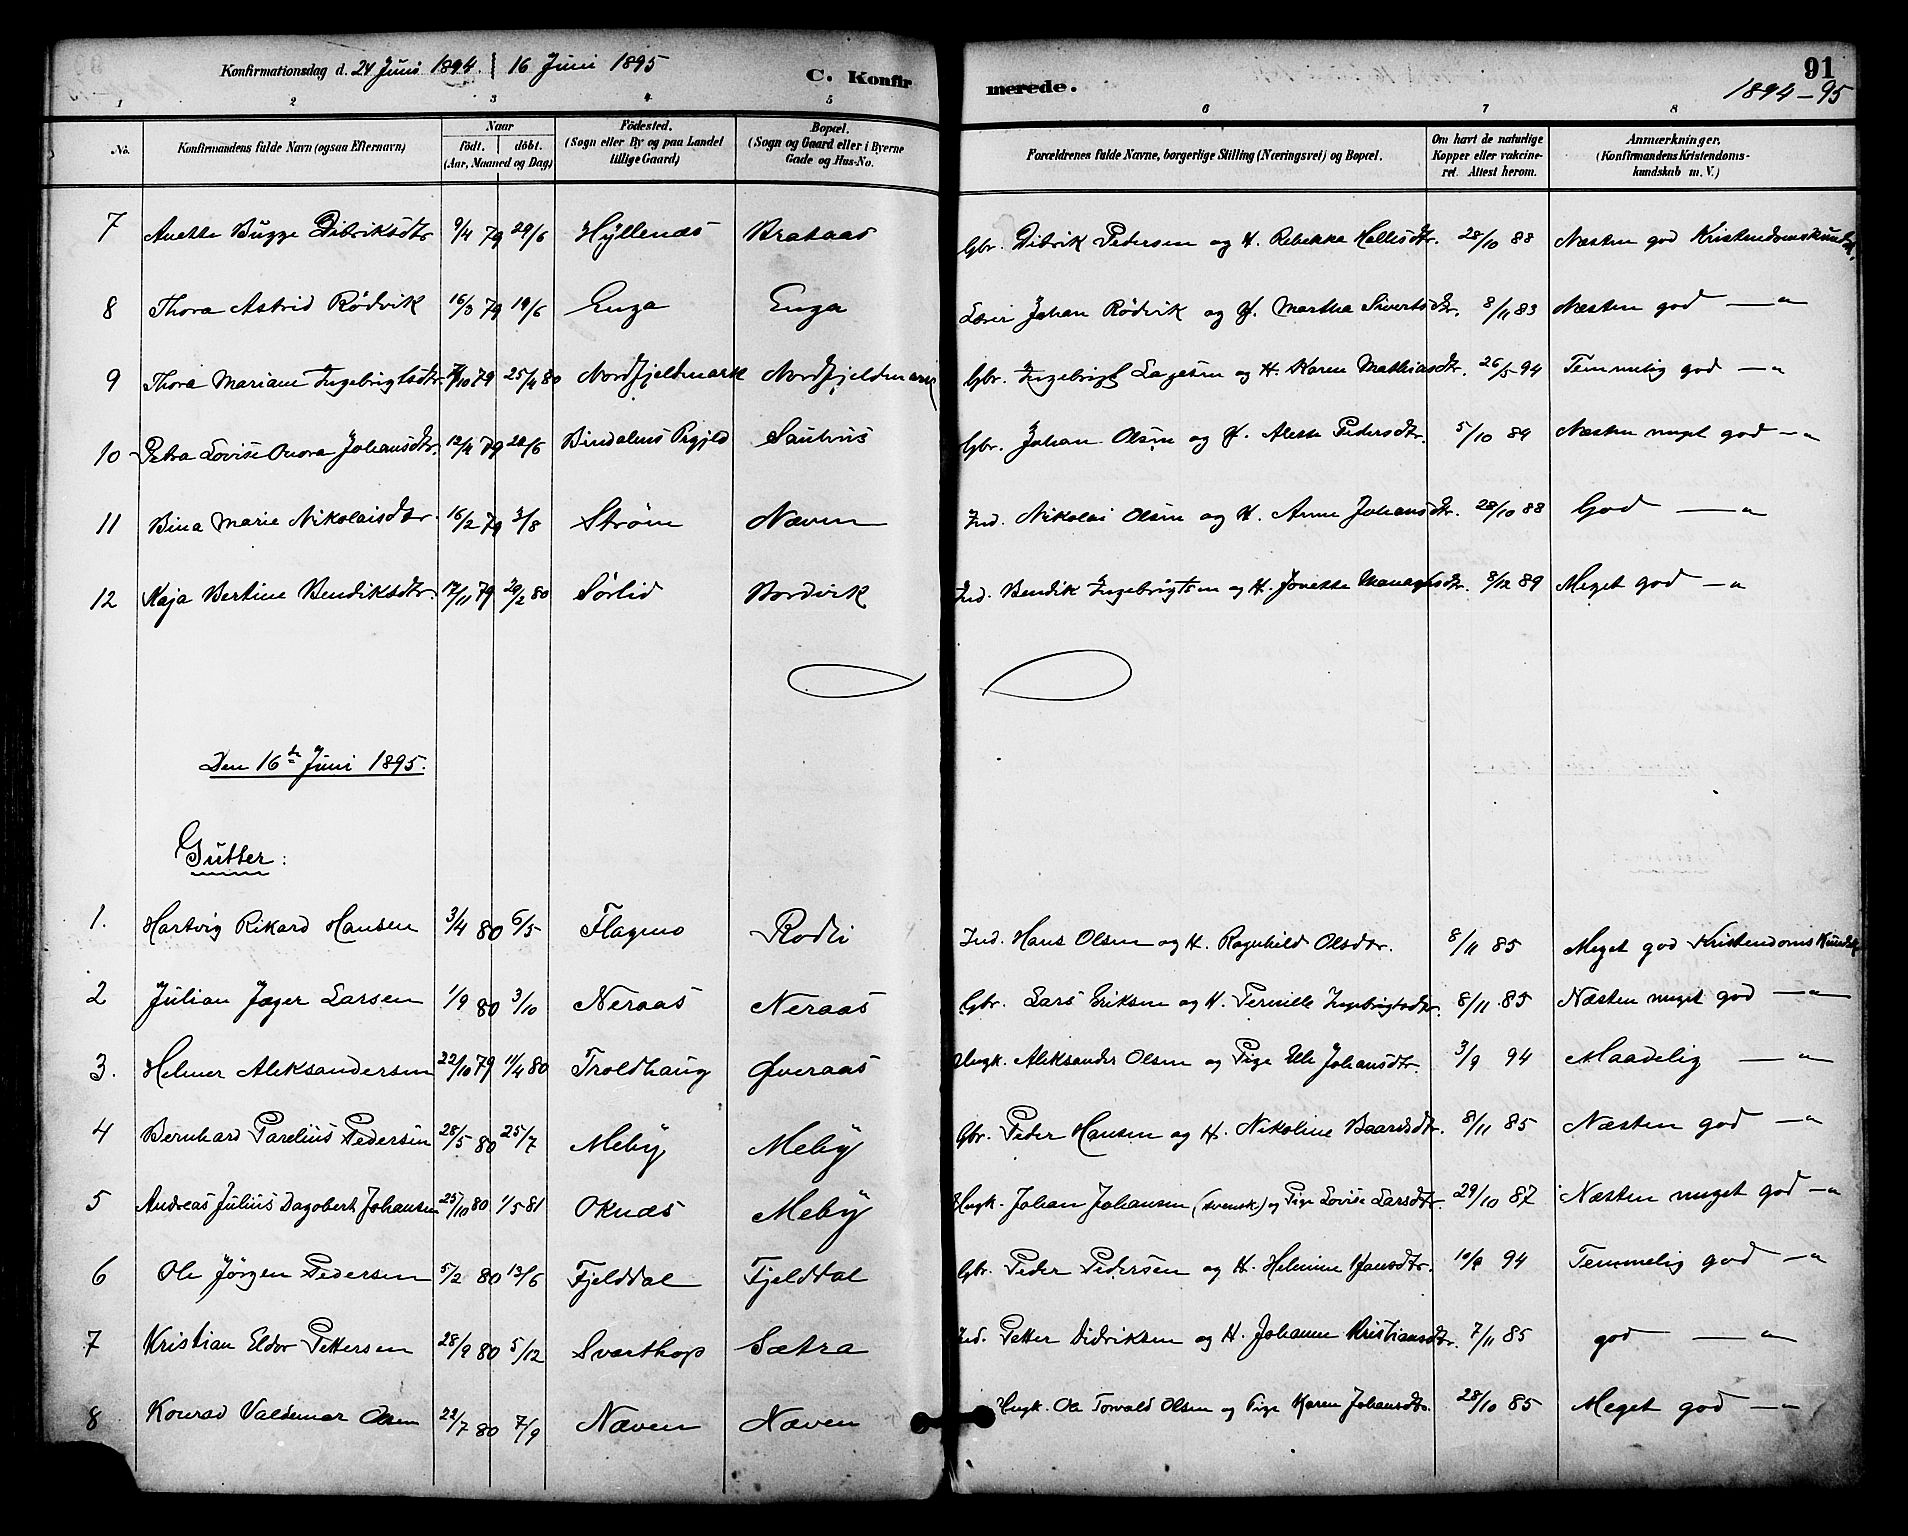 Konfirmationsdag d. 24 Juni 1894. | 16 Juni 1895 C. Konfirmerede. 91
1894-95
1 2 3 4 5 6 7 8
No. Konfirmandens fulde Navn (ogsaa Efternavn) Naar födt. döbt. (Aar, Maaned og Dag) Födested. (Sogn eller By og paa Landet tillige Gaard) Bopæl. (Sogn og Gaard eller i Byerne Gade og Hus-No. Forældrenes fulde Navne, borgerlige Stilling (Næringsvei) og Bopæl. Om havt de naturlige Kopper eller vakcineret. Attest herom. Anmærkninger. (Konfirmandens Kristendomskundskab m. V.)
7 Anette Bugge Didriksdtr 9/4 79 29/6 Hyllenæs Brataas Gbr. Didrik Pedersen og H. Rebekka Hallesdtr. 28/10 88 Næsten god Kristendomskundsk.
8 Thora Astrid Rødvik 16/3 79 19/6 Enga Enga Lærer Johan Rødvik og H. Martha Sivertsdtr. 8/11 83 Næsten god — „
9 Thora Mariane Ingebrigtsdtr. 7/10 79 25/4 80 Nordfjeldmark Nordfjeldmark Gbr. Ingebrigt Lagesen og H. Karen Mathiasdtr. 26/5 94 Temmelig god — „
10 Petra Lovise Onora Johansdtr. 12/4 79 28/6 Bindalens Prgjld Saushus Gbr. Johan Olsen og H. Alette Pedersdtr. 5/10 84 Næsten meget god — „
11 Bina Marie Nikolaisdtr. 16/2 79 3/8 Strøm Næven Ind. Nikolai Olsen og H. Anne Johansdtr. 28/10 88 God — „
12 Kaja Bertine Bendiksdtr. 17/11 79 29/2 80 Sørlid Bordvik Ind. Bendik Ingebrigtsen og H. Jonette 8/12 89 Meget god — „
Den 16de Juni 1895.
Gutter:
1. Hartvig Rikard Hansen 3/4 80 6/5 Flagmo Rodli Ind. Hans Olsen og H. Ragnhild Olsdtr. 8/11 85 Meget god Kristendoms Kundsk
2 Julian Jæger Larsen 1/9 80 3/10 Neraas Neraas Gbr. Lars Eriksen og H. Pernille Ingebrigtsdtr. 8/11 85 Næsten meget god — „
3. Helmer Aleksandersen 22/10 79 11/4 80 Troldhaug Øveraas Ungk. Aleksander Olsen og Pige Elle Johansdtr. 3/9 94 Maadelig — „
4 Bernhard Parelius Pedersen 28/5 80 25/7 Meby Meby Gbr. Peder Hansen og H. Nikoline Baardsdtr. 8/11 85 Næsten god — „
5 Andreas Julius Dagobert Johansen 25/10 80 1/5 81 Oknæs Meby Ungk. Johan Johansen (svensk) og Pige Lovise Larsdtr. 29/10 87 Næsten meget god — „
6 Ole Jörgen Pedersen 5/2 80 13/6 Fjeldtal Fjeldtal Gbr. Peder Pedersen og H. Helmine Hansdtr. 94 Temmelig god — „
7 Kristian Eldor Pettersen 28/9 80 5/12 Svarthop Sætra Ind. Petter Didriksen og H. Johanne Kristiansdtr. 7/11 85 god — „
8 Konrad Valdemar Olsen 22/7 80 7/9 Næven Næven Ungk. Ole Torvald Olsen og Pige Karen Johansdtr. 28/10 85 Meget god — „